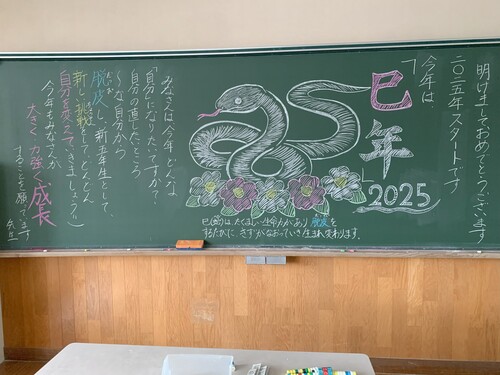 明けましておめでとうございます
二〇二五年スタートです
今年は
「巳年」
2025
巳(蛇)は、たくましい生命力があり脱皮を
するたびに、きずがなおっていき生まれ変わります。
みなさんは今年どんな
「自分」になりたいですか?
自分の直したいところ
(〜な自分から
脱皮し、新五年生として、
新しい挑戦をして、どんどん
自分を変えていきましょう!!
今年もみなさんが、
大きく力強く成長
することを願ってます